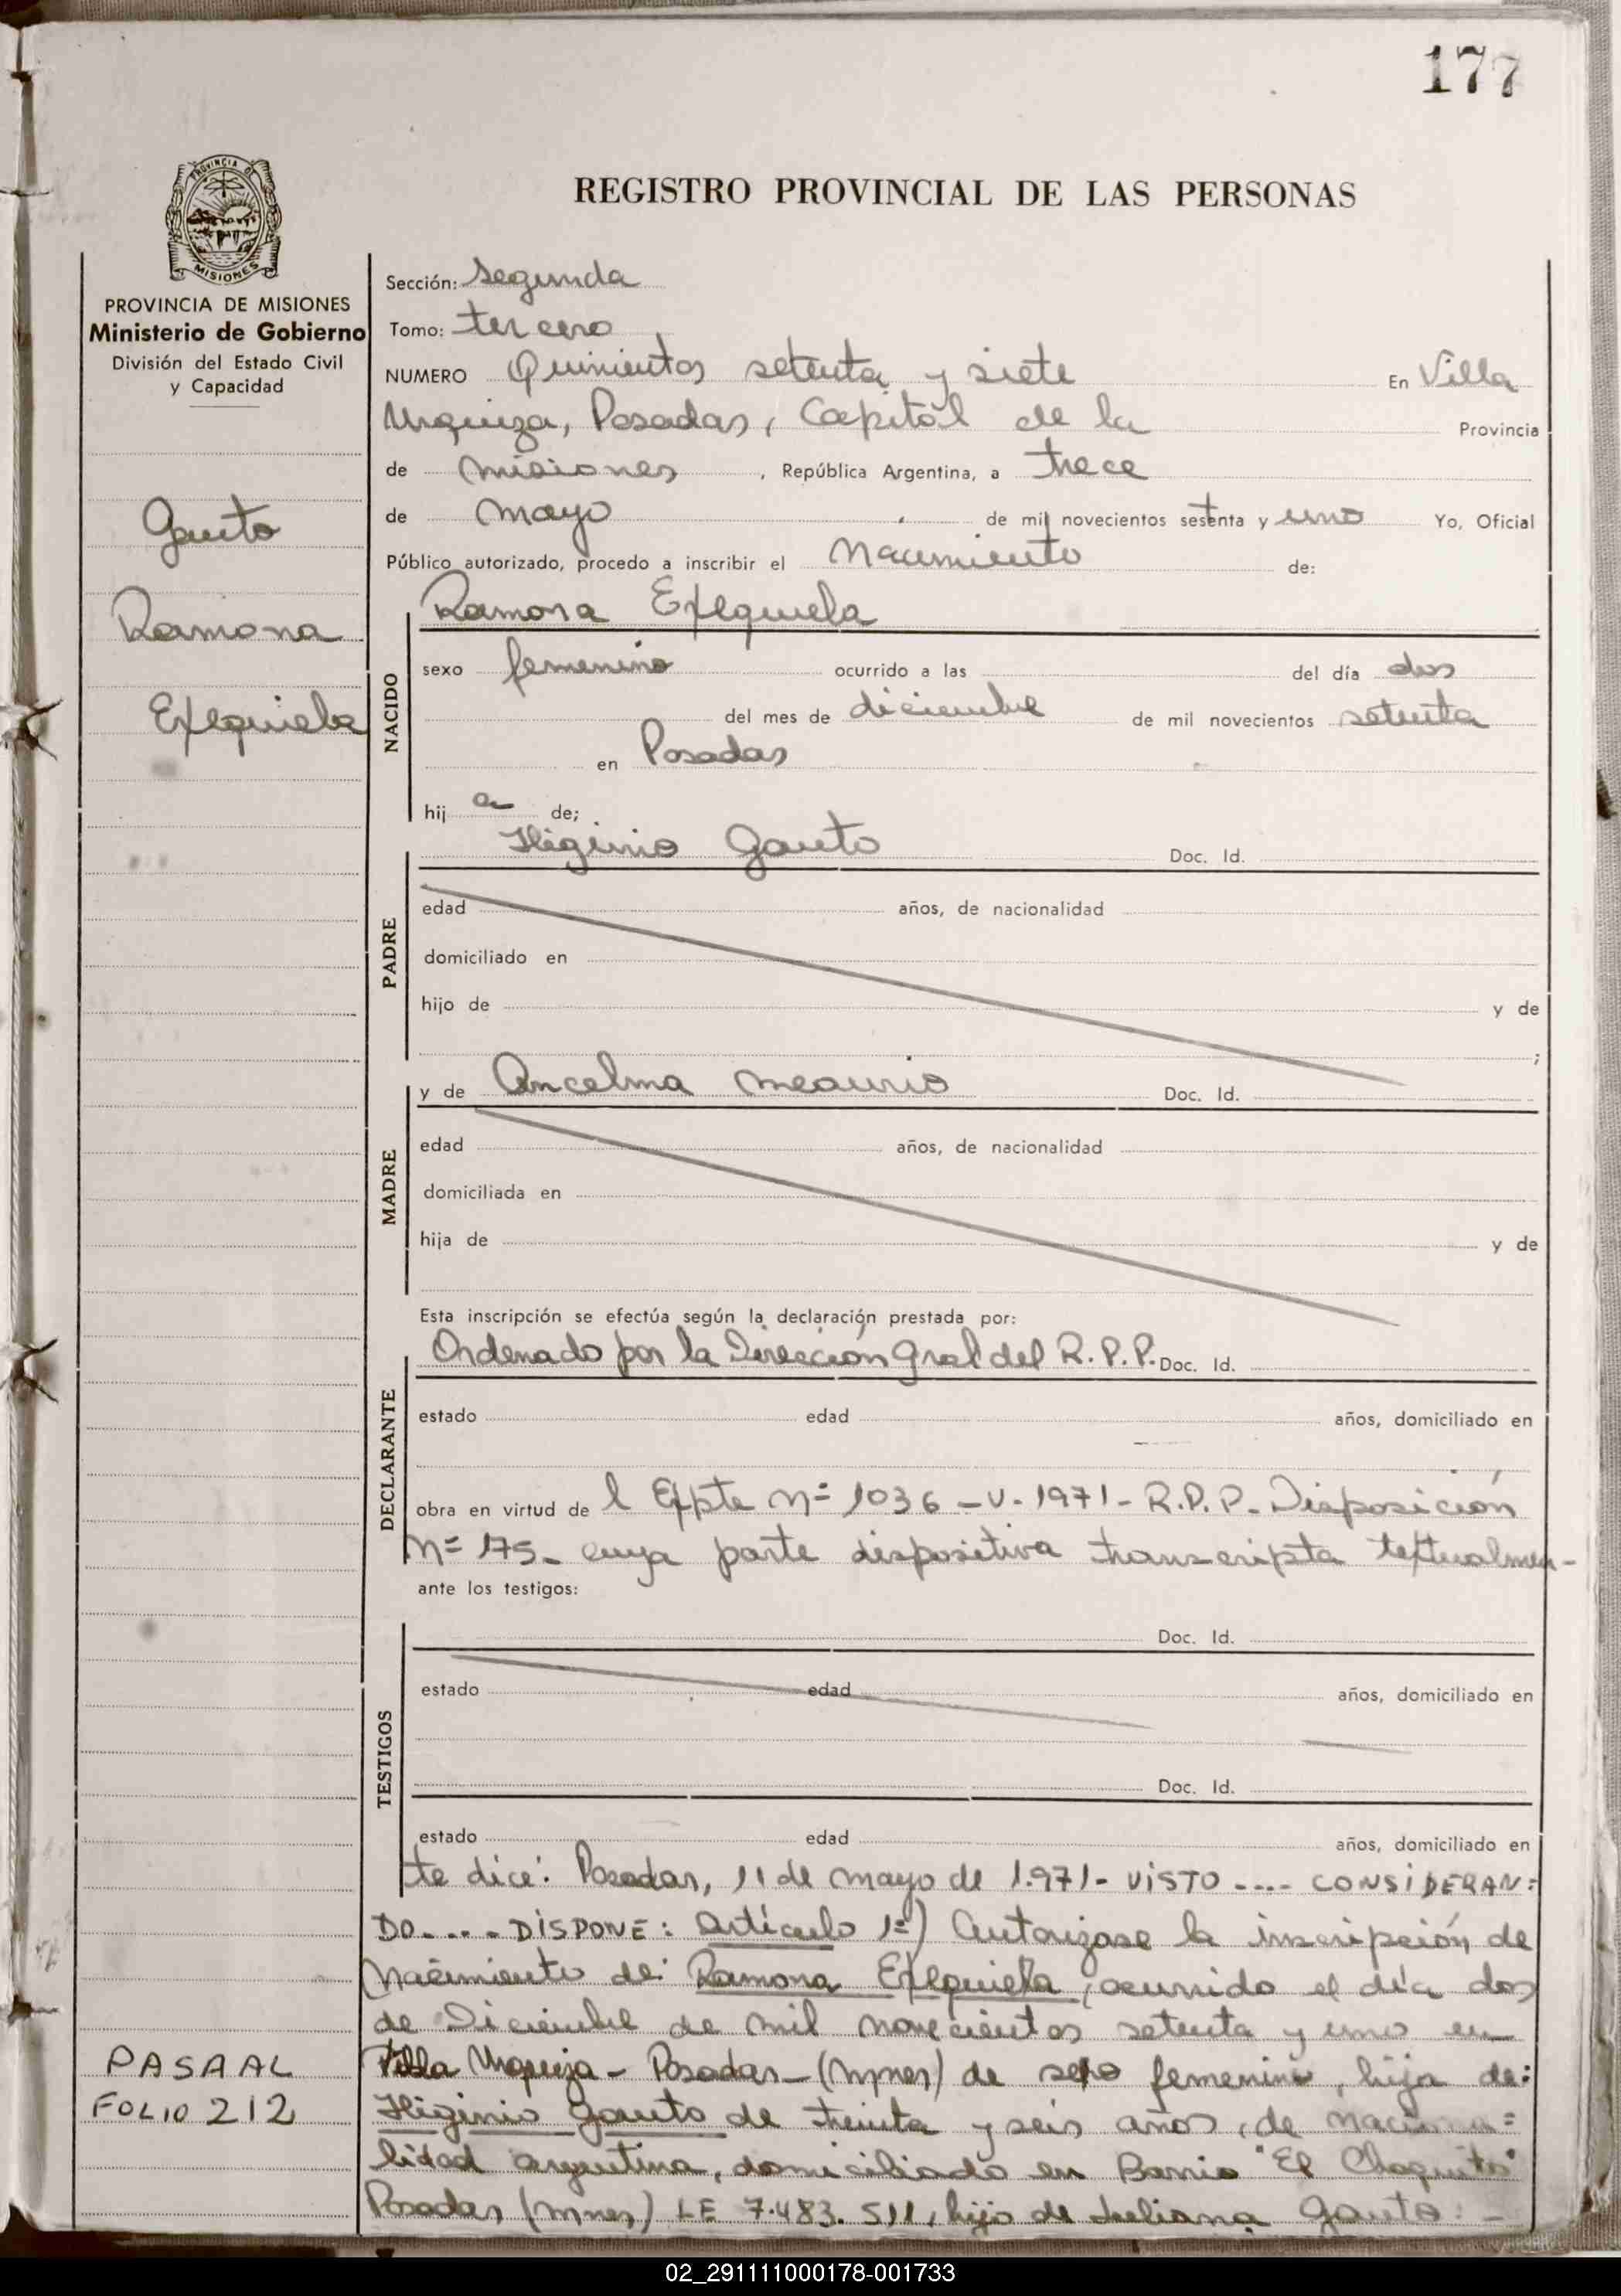 177
REGISTRO PROVINCIAL DE LAS PERSONAS
PROVINCIA DE MISIONES
Ministerio de Gobierno
División del Estado Civil
y Capacidad
Gauto
Ramona
Exequiela
PASA AL
FOLIO 212
Sección: segunda
Tomo: tercero
NUMERO Quinientos setenta y siete En Villa
Urquiza, Posadas, Capital de la Provincia
de misiones, República Argentina, a trece
de mayo de mil novecientos setenta y uno Yo, Oficial
Público autorizado, procedo a inscribir el Nacimiento de:
Ramona Exequiela
NACIDO
sexo femenino ocurrido a las del día dos
del mes de diciembre de mil novecientos setenta
en Posadas
hij a de;
Higinio Gauto Doc. Id.
PADRE
edad años, de nacionalidad
domiciliado en
hijo de y de
;
y de Ancelma Meaurio Doc. Id.
MADRE
edad años, de nacionalidad
domiciliada en
hija de y de
Esta inscripción se efectúa según la declaración prestada por:
Ordenado por la Dirección Gral del R.P.P. Doc. Id.
DECLARANTE
estado edad años, domiciliado en
obra en virtud de l Expte Nº 1036-V-1971-R.P.P. Disposición
Nº 175- cuya parte dispositiva transcripta textualmen-
ante los testigos:
TESTIGOS
Doc. Id.
estado edad años, domiciliado en
Doc. Id.
estado edad años, domiciliado en
te dice: Posadas, 11 de mayo de 1.971- VISTO .... CONSIDERAN=
DO..... DISPONE: Artículo 1º) Autorizase la inscripción de
Nacimiento de: Ramona Exequiela, ocurrido el día dos
de Diciembre de mil novecientos setenta y uno en
Villa Urquiza - Posadas - (Mnes) de sexo femenino, hija de:
Higinio Gauto de treinta y seis años, de naciona=
lidad argentina, domiciliado en Barrio "El Chaquito"
Posadas (Mnes) LE 7.483.511, hijo de Juliana Gauto: -
02_291111000178-001733